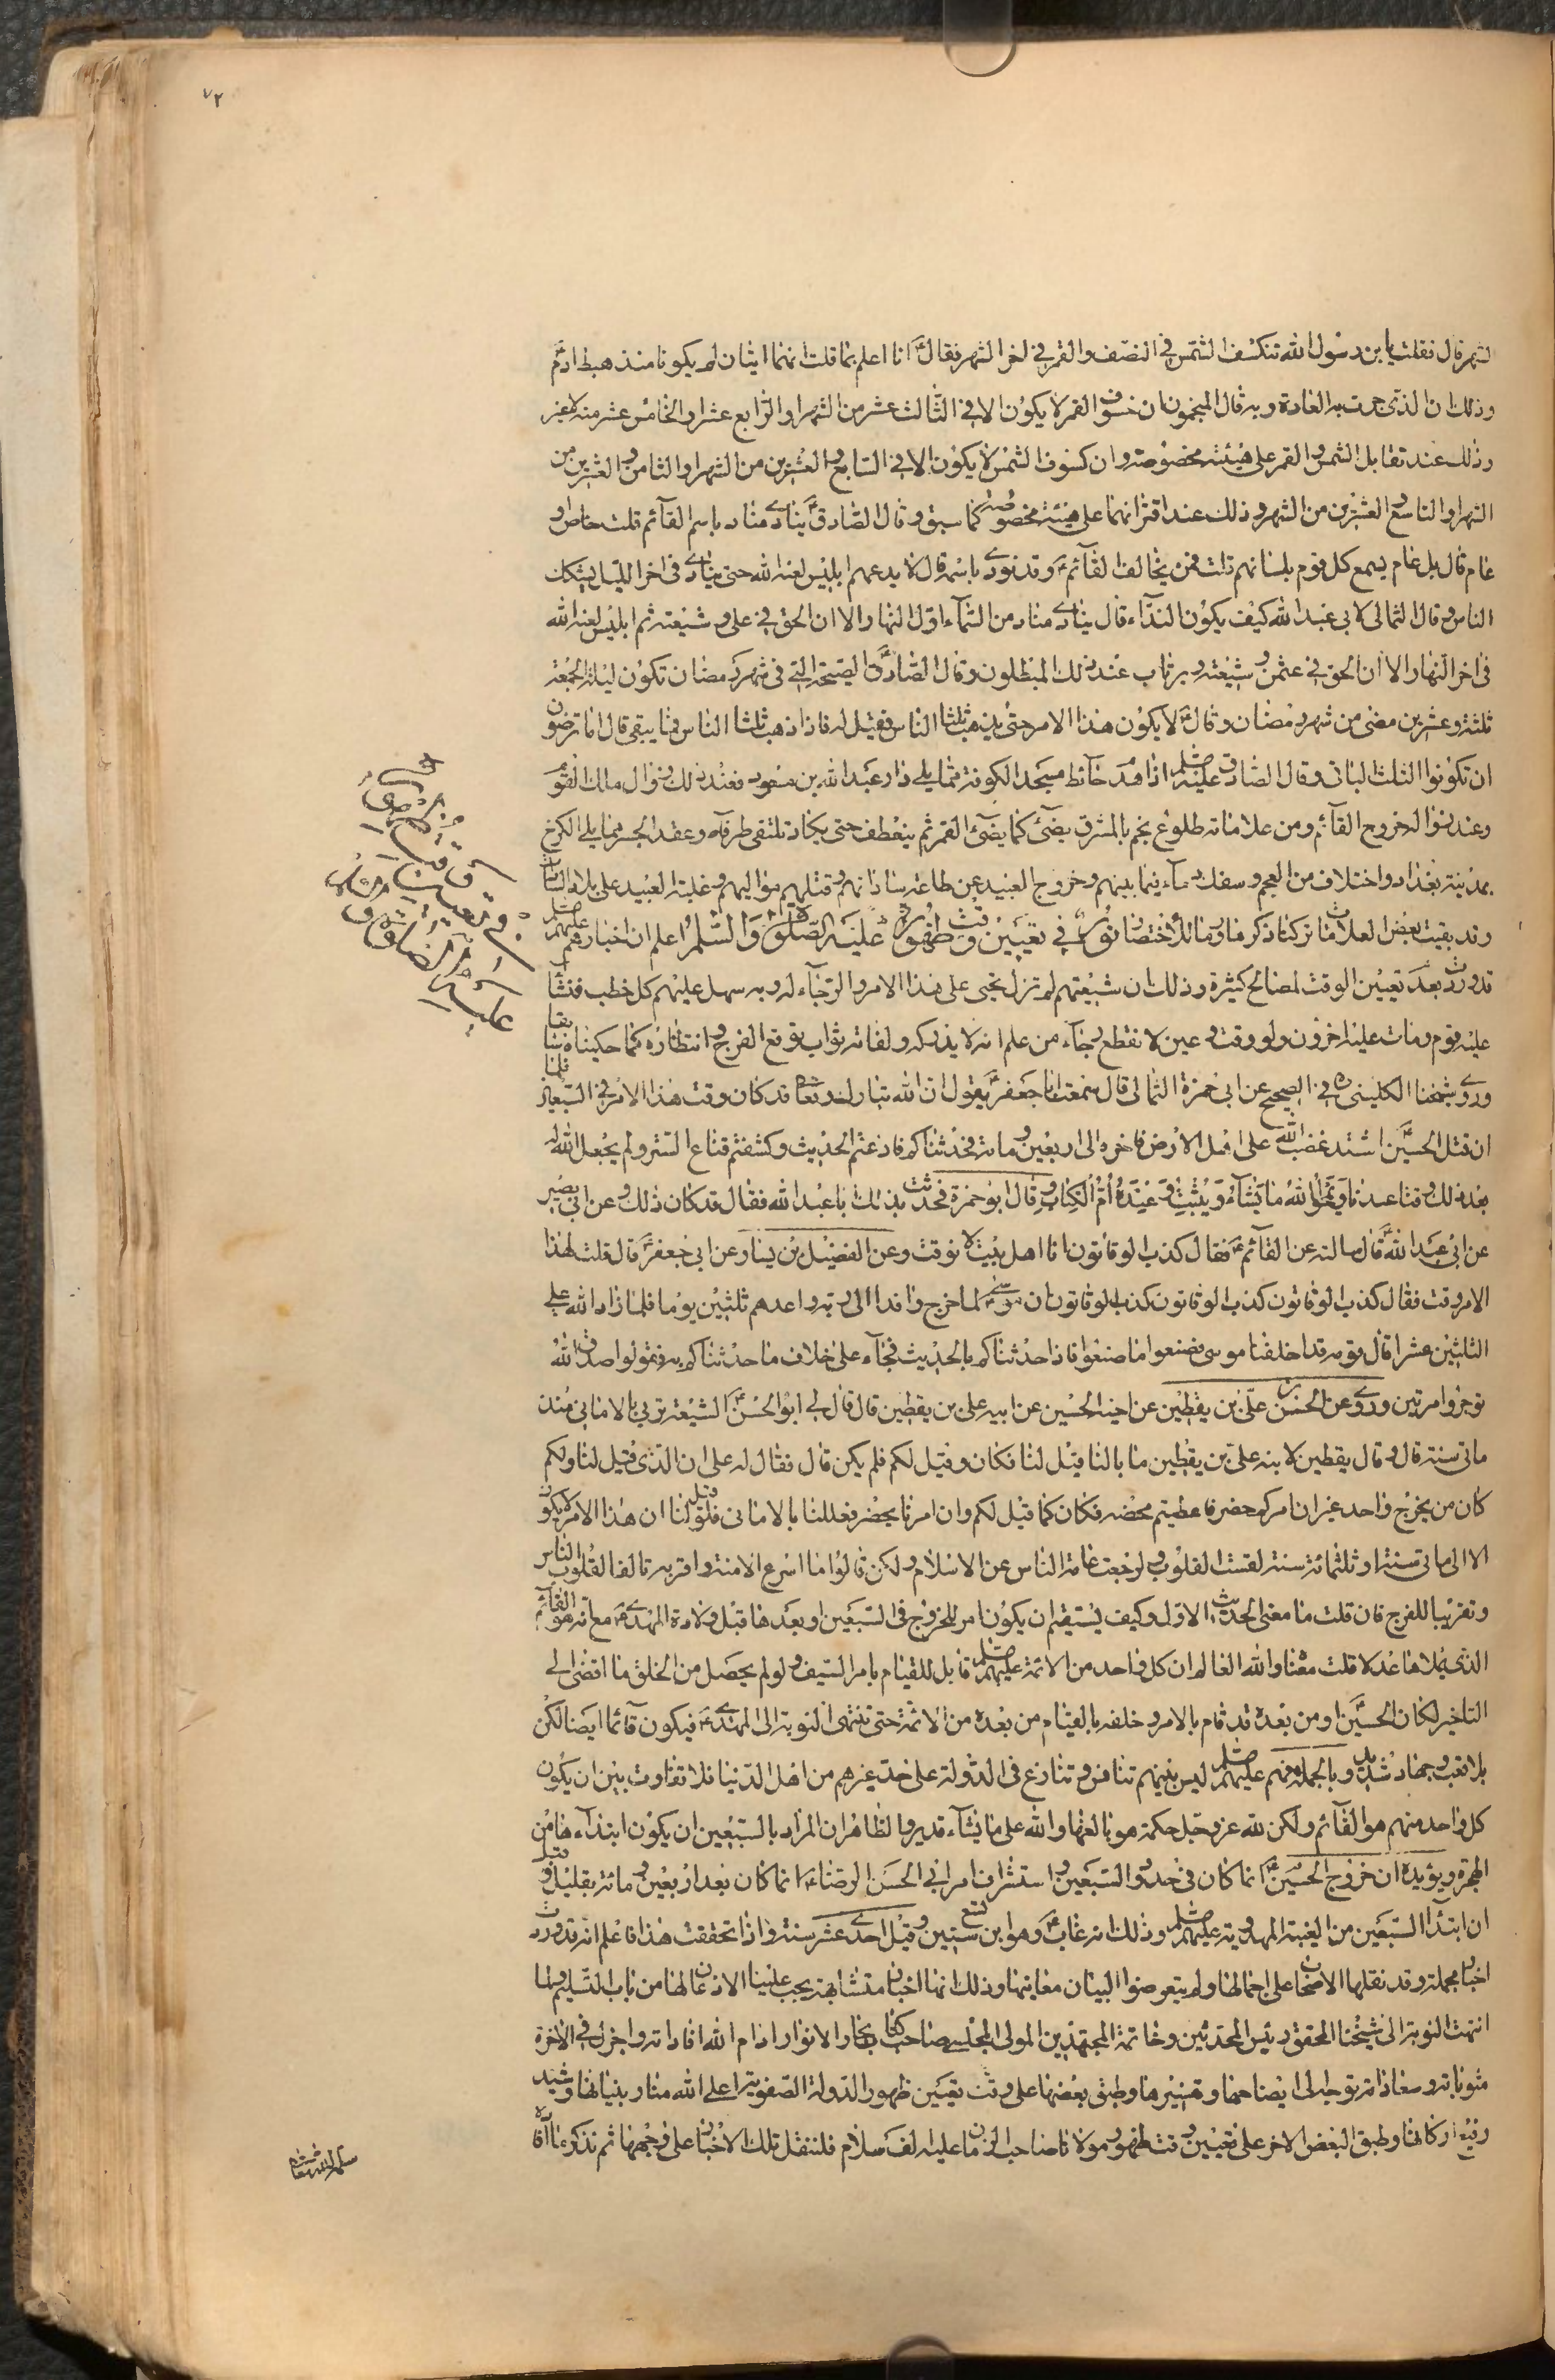 ٧٢
الشهر قال فقلت يا بن رسول الله تنكسف الشمس في النصف والقمر في اخر الشهر فقال ع انا اعلم بما قلت انهما ايتان لم يكونا منذ هبط ادم ع
وذلك ان الذي جرت به العادة وبه قال المنجمون ان خسوف القمر لا يكون الا في الثالث عشر من الشهر او الرابع عشر او الخامس عشر منه لا غير
وذلك عند تقابل الشمس والقمر على هيئته مخصوصة وان كسوف الشمس لا يكون الا في السابع والعشرين من الشهر او الثامن والعشرين من
الشهر او التاسع والعشرين من الشهر وذلك عند اقترانهما على هيئة مخصوصة كما سبق وقال الصادق ع ينادي مناد باسم القائم قلت خاص او
عام قال بل عام يسمع كل قوم بلسانهم قلت فمن يخالف القآئم ع وقد نودي باسمه قال لا يدعهم ابليس لعنه الله حتى ينادي في اخر الليل ليشكك
الناس وقال الثمالي لابي عبد الله كيف يكون الندآء قال ينادي مناد من السمآء اول النهار الا ان الحق في علي وشيعته ثم ابليس لعنه الله
في اخر النهار الا ان الحق في عثمن وشيعته ويرتاب عند ذلك المبطلون وقال الصادق ع الصيحة التي في شهر رمضان تكون ليلة الجمعة
ثلثة وعشرين مضى من شهر رمضان وقال ع لا يكون هذا الامر حتى يذهب ثلثا الناس فقيل له فاذا ذهب ثلثا الناس فما يبقى قال اما ترضون
ان تكونوا الثلث الباقي وقال الصادق عليه السلم اذا هدم حائط مسجد الكوفة مما يلي دار عبد الله بن مسعود فعند ذلك زوال مالك القوم
وعند زواله خروج القآئم ومن علاماته طلوع نجم بالمشرق يضئ كما يضئ القمر ثم ينعطف حتى يكاد تلتقي طرفاه وعقد الجسر مما يلي الكرخ
بمدينة بغداد واختلاف من العجم وسفك دمآء فيما بينهم وخروج العبيد عن طاعة ساداتهم وقتلهم مواليهم وغلبة العبيد على بلاد السادات
وقد بقيت بعض العلامات تركنا ذكرها روما للاختصار نور في تعيين وقت ظهوره عليه الصلوة والسلم اعلم ان اخبارهم عليهم السلم
قد وردت بعدم تعيين الوقت لمصالح كثيرة وذلك ان شيعتهم لم تزل تحيى على هذا الامر والرجآء له وبه سهل عليهم كل خطب فنشأ
عليه قوم ومات عليه اخرون ولو وقت وعين لانقطع رجآء من علم انه لا يدركه ولفاته ثواب توقع الفرج وانتظاره كما حكيناه سابقا
وروى شيخنا الكليني ره في الصحيح عن ابي حمزة الثمالي قال سمعت ابا جعفر ع يقول ان الله تبارك وتعالى قد كان وقت هذا الامر في السبعين فلما
ان قتل الحسين ع اشتد غضب الله على اهل الارض فاخره الى اربعين ومائة فحدثناكم فاذعتم الحديث وكشفتم قناع الستر ولم يجعل الله له
بعد ذلك وقتا عندنا ويمحو الله ما يشآء ويثبت وعنده ام الكتاب وقال ابو حمزة فحدثت بذلك ابا عبد الله فقال قد كان ذلك وعن ابي بصير
عن ابي عبد الله ع قال سالته عن القآئم ع فقال كذب الوقاتون انا اهل بيت لا نوقت وعن الفضيل بن يسار عن ابي جعفر ع قال قلت لهذا
الامر وقت فقال كذب الوقاتون كذب الوقاتون كذب الوقاتون ان موسى لما خرج وافدا الى ربه واعدهم ثلثين يوما فلما زاد الله على
الثلثين عشرا قال قومه قد اخلفنا موسى فصنعوا ما صنعوا فاذا حدثناكم بالحديث فجآء على خلاف ما حدثناكم به فقولوا صدق الله
توجروا مرتين وروي عن الحسن بن علي بن يقطين عن اخيه الحسين عن ابيه علي بن يقطين قال قال لي ابو الحسن ع الشيعة تربي بالاماني منذ
مائتي سنة قال وقال يقطين لابنه علي بن يقطين ما بالنا قيل لنا فكان وقيل لكم فلم يكن قال فقال له علي ان الذي قيل لنا ولكم
كان من يخرج واحد غير ان امركم حضر فاعطيتم محضه فكان كما قيل لكم وان امرنا يحضر فعللنا بالاماني فلو قيل لنا ان هذا الامر لا يكون
الا الى مائتي سنة او ثلثمائة سنة لقست القلوب ولرجعت عامة الناس عن الاسلام ولكن قالوا ما اسرع الامنه واقربه تالفا لقلوب الناس
وتقريبا للفرج فان قلت ما معنى الحديث الاول وكيف يستقيم ان يكون امر للخروج في السبعين او بعدها قبل ولادة المهدي ع مع انه هو القآئم
الذي يملاها عدلا قلت معناه والله العالم ان كل واحد من الائمة عليهم السلم قابل للقيام بامر السيف ولو لم يحصل من الخلق ما افضى الى
التاخير لكان الحسين ع او من بعده قد قام بالامر وخلفه بالقيام من بعده من الائمة حتى تنتهي النوبة الى المهدي ع فيكون قآئما ايضا لكن
بلا تعب وجهاد شديد وبالجملة فهم عليهم السلم ليس بينهم تنافس وتنازع في الدولة على حد غيرهم من اهل الدنيا فلا تفاوت بين ان يكون
كل واحد منهم هو القآئم ولكن لله عز وجل حكمة هو بالغها والله على ما يشآء قدير والظاهر ان المراد بالسبعين ان يكون ابتدآءها من
الهجرة ويؤيده ان خروج الحسين ع انما كان في حدود السبعين واستشراف امر ابي الحسن الرضا ع انما كان بعد اربعين ومائة بقليل وقيل
ان ابتدآ السبعين من الغيبة المهدوية عليهم السلم وذلك انه غاب ع وهو ابن تسع سنين وقيل احدى عشر سنة واذا تحققت هذا فاعلم انه قد وردت
اخبار مجملة وقد نقلها الاصحاب على اجمالها ولم يتعرضوا البيان معانيها وذلك انها اخبار متشابهة يجب علينا الاذعان لها من باب التسليم ولما
انتهت النوبة الى شيخنا المحقق رئيس المحدثين وخاتمة المجتهدين المولى المجلسي صاحب كتاب بحار الانوار ادام الله افاداته واجزل في الاخرة
مثوباته وسعاداته توجه الى ايضاحها وتفسيرها وطبق بعضها على وقت تعيين ظهور الدولة الصفوية اعلى الله منار بنيانها وشيد
رفيع اركانها وطبق البعض الاخر على تعيين وقت ظهور مولانا صاحب الزمان عليه الف سلام فلننقل تلك الاخبار على وجهها ثم نذكر ما افاده
سلمه الله تعالى